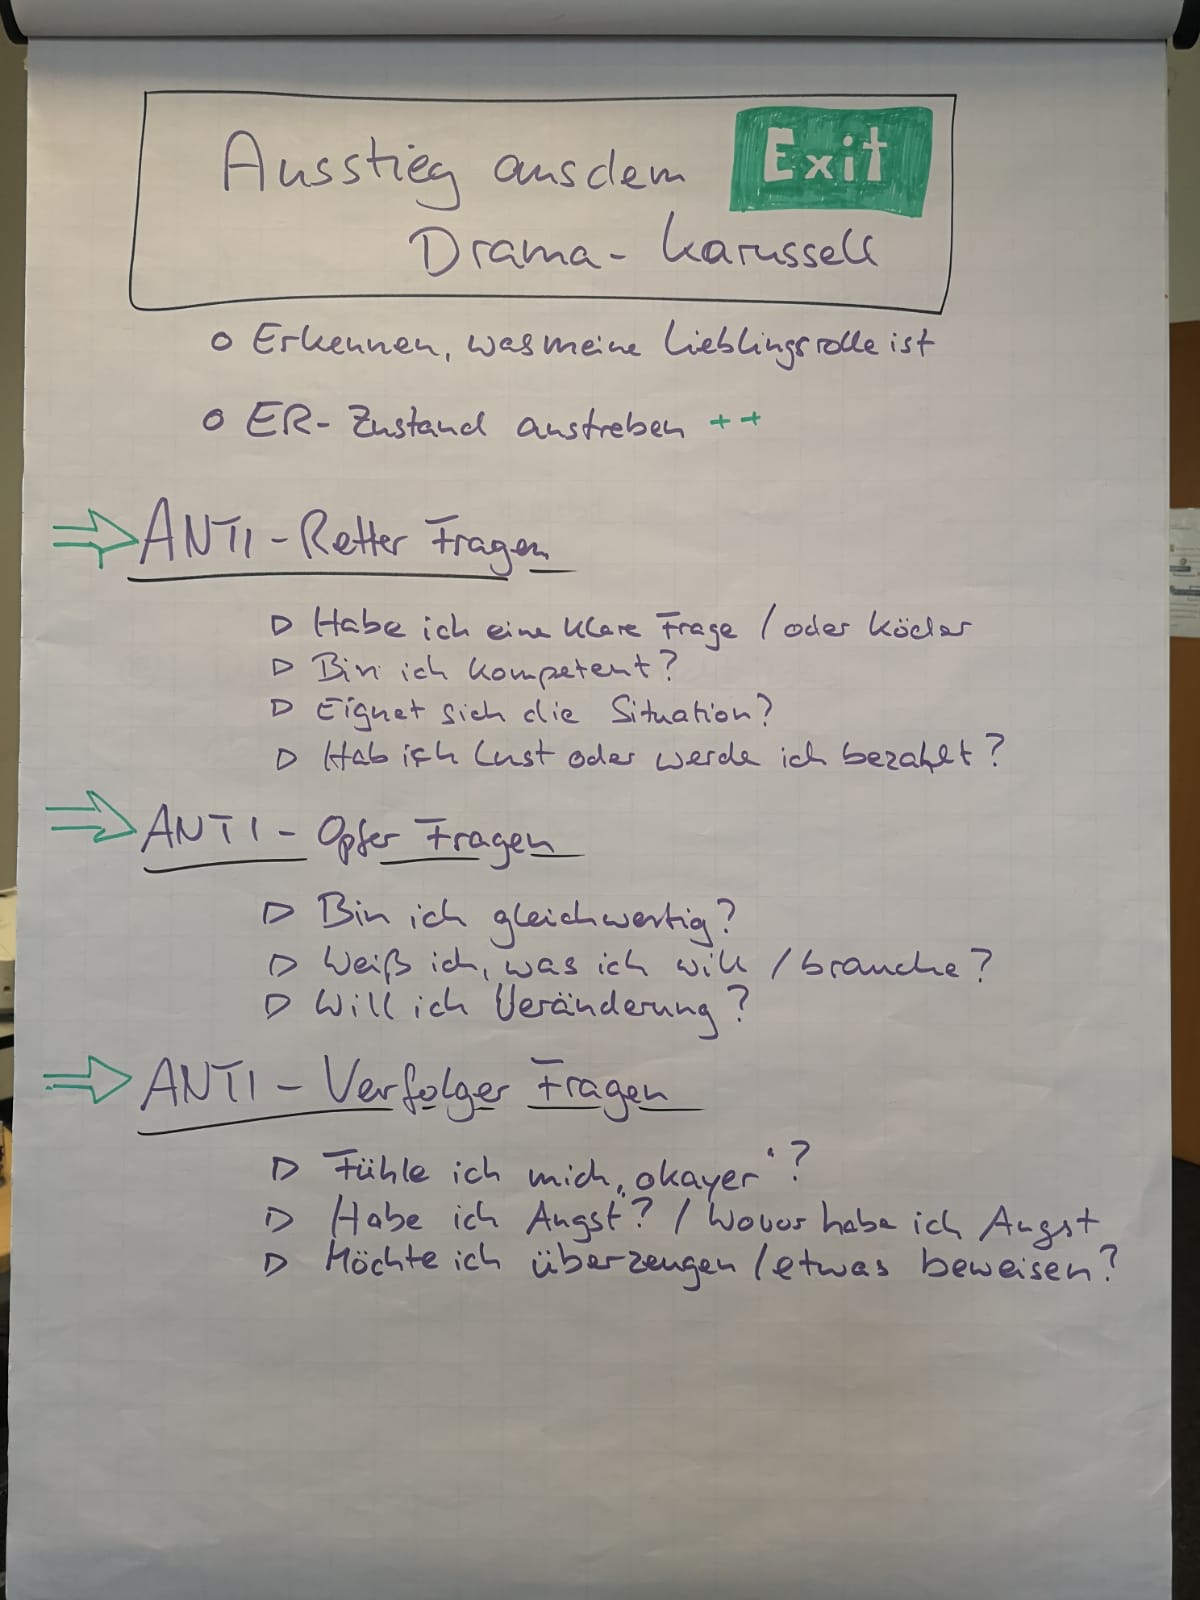 Ausstieg aus dem Exit
Drama-Karussell
o Erkennen, was meine Lieblingsrolle ist
o ER-Zustand anstreben ++
⇒ ANTI-Retter Fragen
▷ Habe ich eine klare Frage / oder Köder
▷ Bin ich kompetent?
▷ Eignet sich die Situation?
▷ Hab ich Lust oder werde ich bezahlt?
⇒ ANTI-Opfer Fragen
▷ Bin ich gleichwertig?
▷ Weiß ich, was ich will / brauche?
▷ Will ich Veränderung?
⇒ ANTI-Verfolger Fragen
▷ Fühle ich mich „okayer"?
▷ Habe ich Angst? / Wovor habe ich Angst
▷ Möchte ich überzeugen / etwas beweisen?